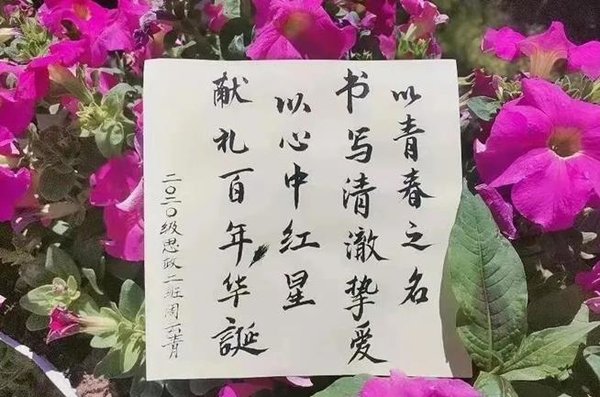 以青春之名
书写清澈挚爱
以心中红星
献礼百年华誕
二〇二〇级思政二班周六青